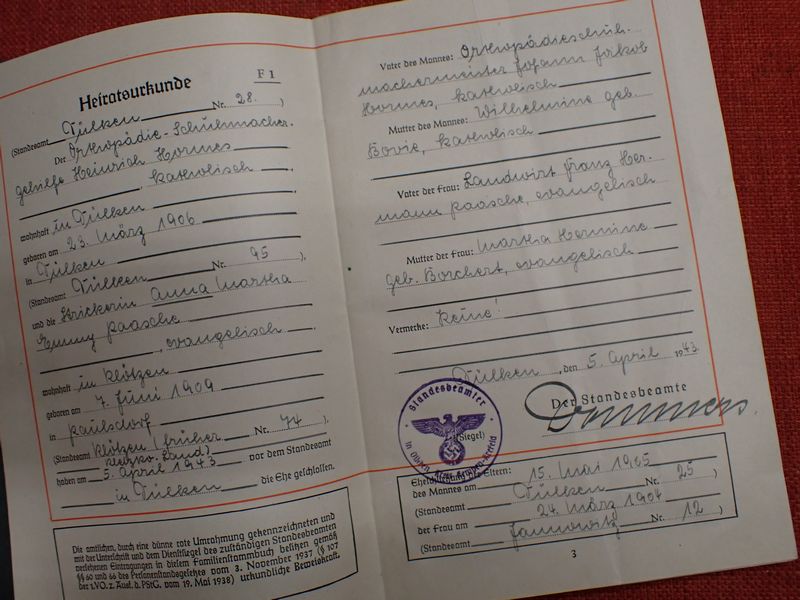 Heiratsurkunde
F 1
(Standesamt Dülken Nr. 28.)
Der Orthopädie-Schuhmacher-
geselle Heinrich Hormes
, katholisch,
wohnhaft in Dülken,
geboren am 23. März 1906
in Dülken
(Standesamt Dülken Nr. 95),
und die Strickerin Anna Martha
Emmy Paasche
, evangelisch,
wohnhaft in Klötzen
geboren am 7. Juni 1909
in Paulsdorf
(Standesamt Klötzen (früher Nr. 74)
Land)
haben am 5. April 1943 vor dem Standesamt
in Dülken die Ehe geschlossen.
Die amtlichen, durch eine dünne rote Umrahmung gekennzeichneten und
mit der Unterschrift und dem Dienstsiegel des zuständigen Standesbeamten
versehenen Eintragungen in diesem Familienstammbuch besitzen gemäß
§§ 60 und 66 des Personenstandsgesetzes vom 3. November 1937 (§ 107
der 1. VO. z. Ausf. d. PStG. vom 19. Mai 1938) urkundliche Beweiskraft.
Vater des Mannes: Orthopädieschuh-
machermeister Johann Jakob
Hormes, katholisch
Mutter des Mannes: Wilhelmine geb.
Bovie, katholisch
Vater der Frau: Landwirt Franz Her-
mann Paasche, evangelisch
Mutter der Frau: Martha Hermine
geb. Borchert, evangelisch
Vermerke: Keine!
Dülken, den 5. April 1943
Der Standesbeamte
(Siegel)
Standesbeamter
Eheschließung der Eltern:
des Mannes am 15. Mai 1905
(Standesamt Dülken Nr. 25)
der Frau am 24. März 1904
(Standesamt Jannowitz Nr. 12)
3